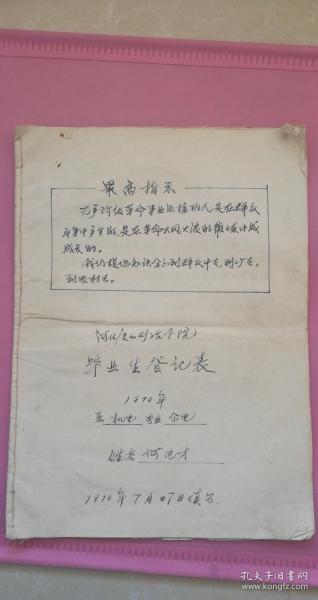 最高指示
无产阶级革命事业的接班人,是在群众
斗争中产生的,是在革命大风大浪的锻炼中成
成长的。
我们提倡知识分子到群众中去,到工厂去,
到农村去。
河北 学院
毕业生登记表
1970年
系 机电 专业 企电
姓名 何 才
1970年7月 日填写
孔夫子旧书网